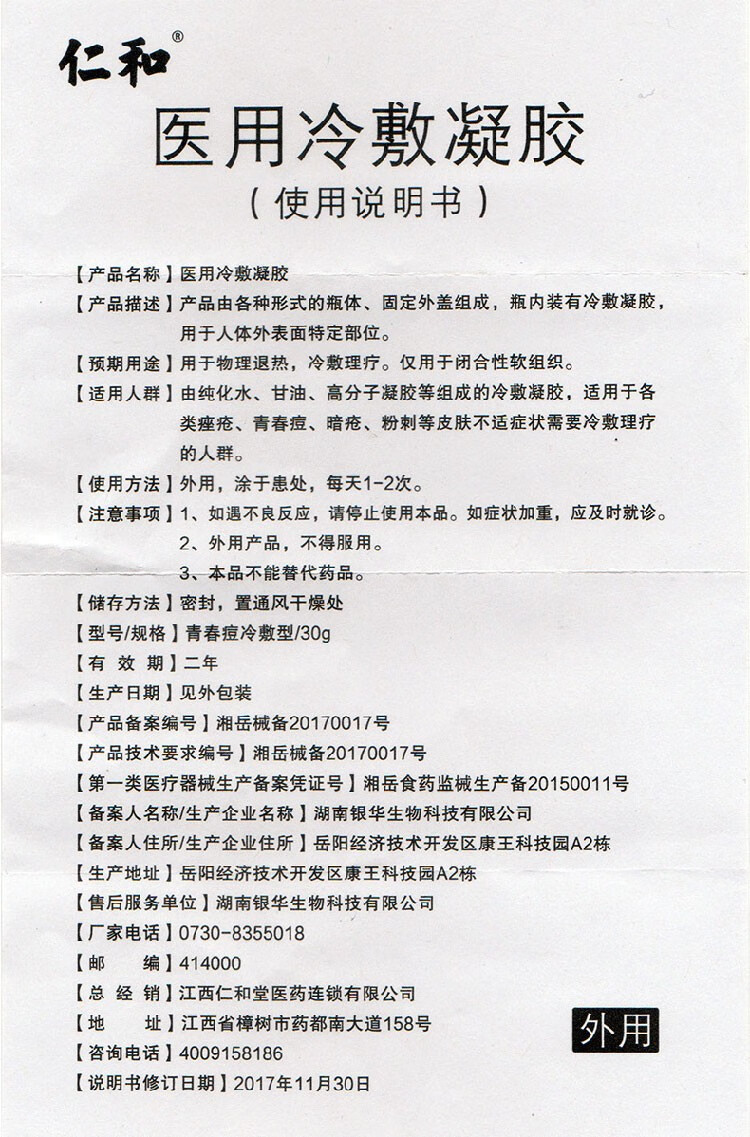 仁和®
医用冷敷凝胶
(使用说明书)
【产品名称】医用冷敷凝胶
【产品描述】产品由各种形式的瓶体、固定外盖组成，瓶内装有冷敷凝胶，
用于人体外表面特定部位。
【预期用途】用于物理退热，冷敷理疗。仅用于闭合性软组织。
【适用人群】由纯化水、甘油、高分子凝胶等组成的冷敷凝胶，适用于各
类痤疮、青春痘、暗疮、粉刺等皮肤不适症状需要冷敷理疗
的人群。
【使用方法】外用，涂于患处，每天1-2次。
【注意事项】1、如遇不良反应，请停止使用本品。如症状加重，应及时就诊。
2、外用产品，不得服用。
3、本品不能替代药品。
【储存方法】密封，置通风干燥处
【型号/规格】青春痘冷敷型/30g
【有 效 期】二年
【生产日期】见外包装
【产品备案编号】湘岳械备20170017号
【产品技术要求编号】湘岳械备20170017号
【第一类医疗器械生产备案凭证号】湘岳食药监械生产备20150011号
【备案人名称/生产企业名称】湖南银华生物科技有限公司
【备案人住所/生产企业住所】岳阳经济技术开发区康王科技园A2栋
【生产地址】岳阳经济技术开发区康王科技园A2栋
【售后服务单位】湖南银华生物科技有限公司
【厂家电话】0730-8355018
【邮 编】414000
【总 经 销】江西仁和堂医药连锁有限公司
【地 址】江西省樟树市药都南大道158号
外用
【咨询电话】4009158186
【说明书修订日期】2017年11月30日